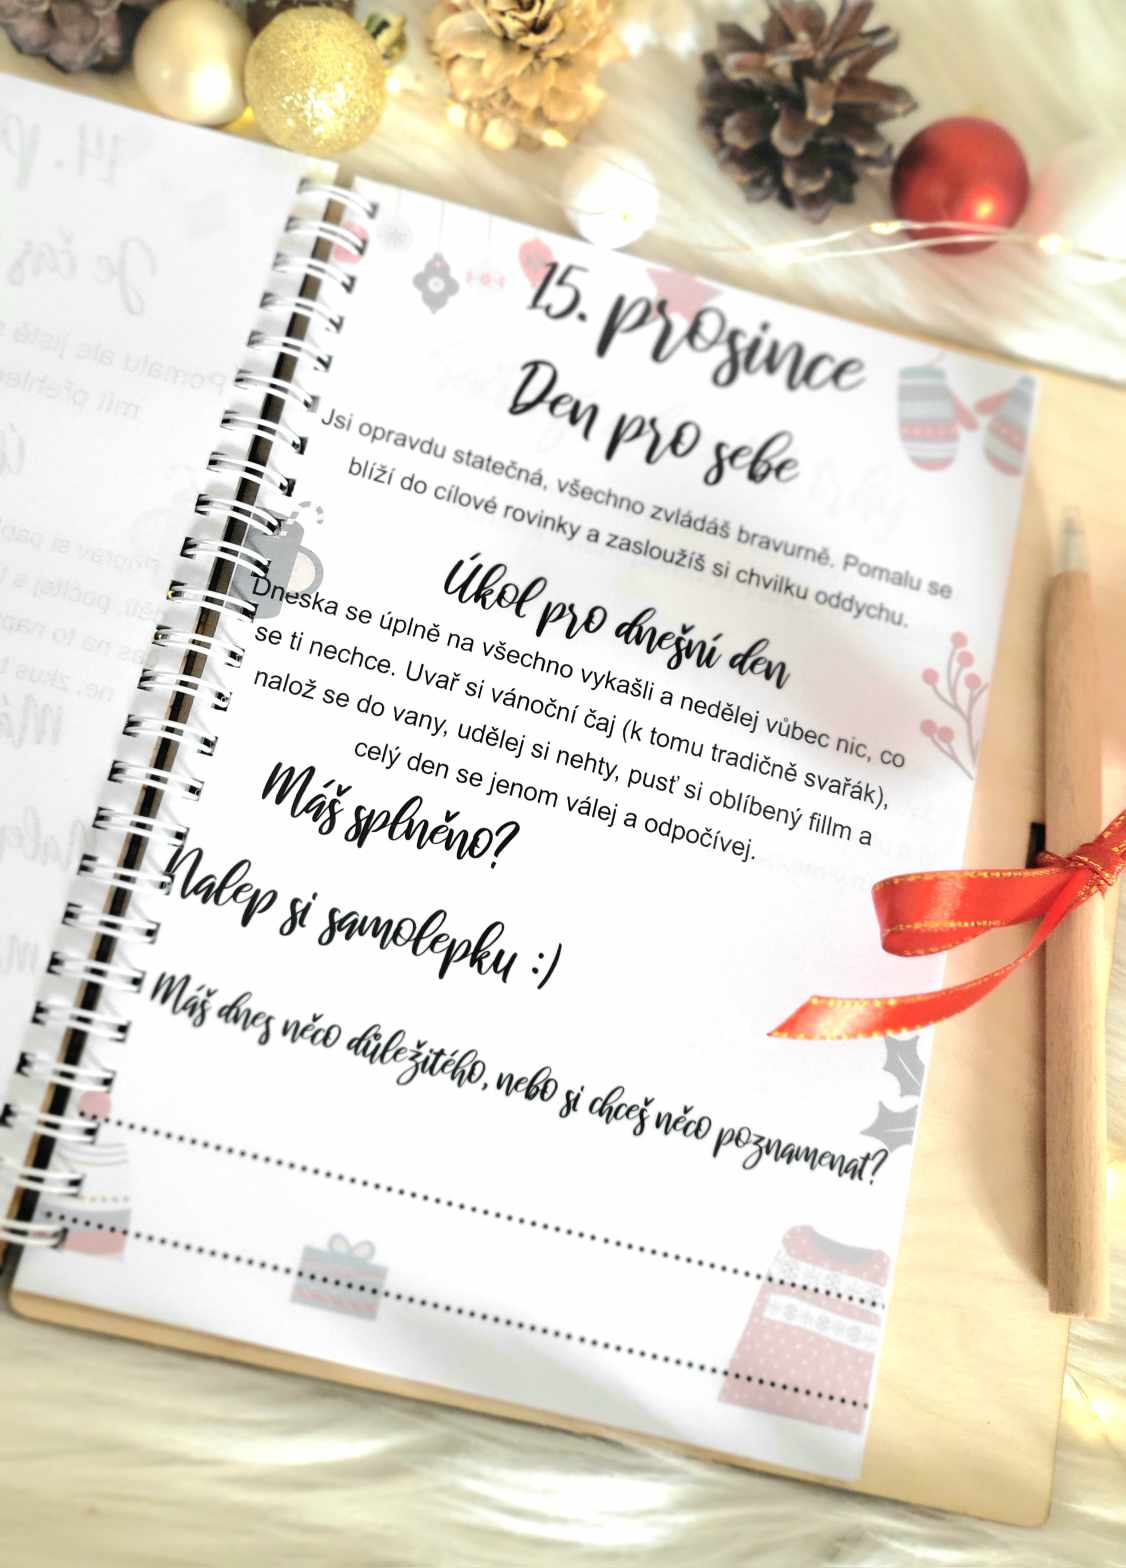 15. prosince
Den pro sebe
Jsi opravdu statečná, všechno zvládáš bravurně. Pomalu se
blíží do cílové rovinky a zasloužíš si chvilku oddychu.
Úkol pro dnešní den
Dneska se úplně na všechno vykašli a nedělej vůbec nic, co
se ti nechce. Uvař si vánoční čaj (k tomu tradičně svařák),
nalož se do vany, udělej si nehty, pusť si oblíbený fillm a
celý den se jenom válej a odpočívej.
Máš splněno?
Nalep si samolepku :)
Máš dnes něco důležitého, nebo si chceš něco poznamenat?